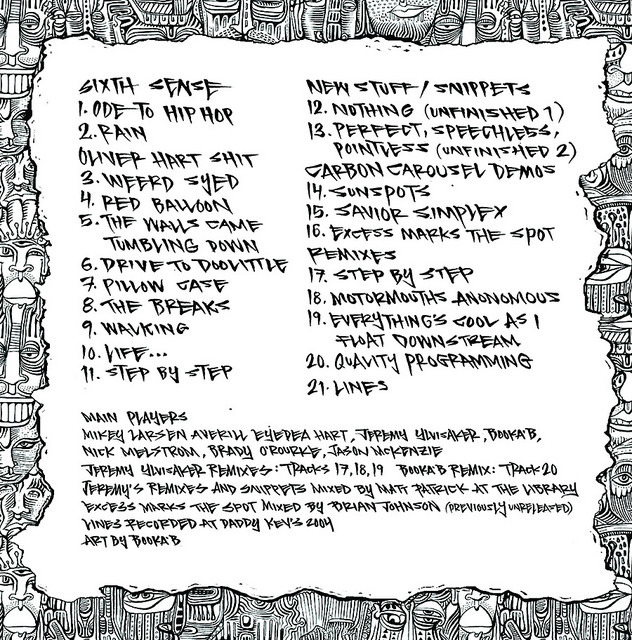 SIXTH SENSE
1. ODE TO HIP HOP
2. RAIN
OLIVER HART SHIT
3. WEERD SYED
4. RED BALLOON
5. THE WALLS CAME
TUMBLING DOWN
6. DRIVE TO DOOLITTLE
7. PILLOW CASE
8. THE BREAKS
9. WALKING
10. LIFE...
11. STEP BY STEP
NEW STUFF/SNIPPETS
12. NOTHING (UNFINISHED 1)
13. PERFECT, SPEECHLESS,
POINTLESS (UNFINISHED 2)
CARBON CAROUSEL DEMOS
14. SUNSPOTS
15. SAVIOR SIMPLEX
16. EXCESS MARKS THE SPOT
REMIXES
17. STEP BY STEP
18. MOTORMOUTHS ANONOMOUS
19. EVERYTHING'S COOL AS I
FLOAT DOWNSTREAM
20. QUALITY PROGRAMMING
21. LINES
MAIN PLAYERS
MIKEY LARSEN AVERILL EYEDEA HART, JEREMY YLVISAKER, BOOKA'B,
NICK MELSTROM, BRADY O'ROURKE, JASON MCKENZIE
JEREMY YLVISAKER REMIXES: TRACKS 17,18,19 BOOKA'B REMIX: TRACK 20
JEREMY'S REMIXES AND SNIPPETS MIXED BY MATT PATRICK AT THE LIBRARY
EXCESS MARKS THE SPOT MIXED BY BRIAN JOHNSON (PREVIOUSLY UNRELEASED)
LINES RECORDED AT DADDY KEV'S 2004
ART BY BOOKA'B